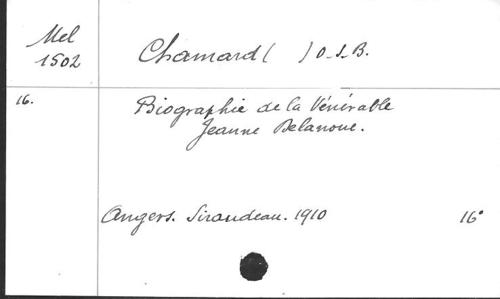 Mel
1502
Chamard ( ) O.S.B.
16.
Biographie de la Vénérable
Jeanne Delanoue.
Angers. Siraudeau. 1910
16°